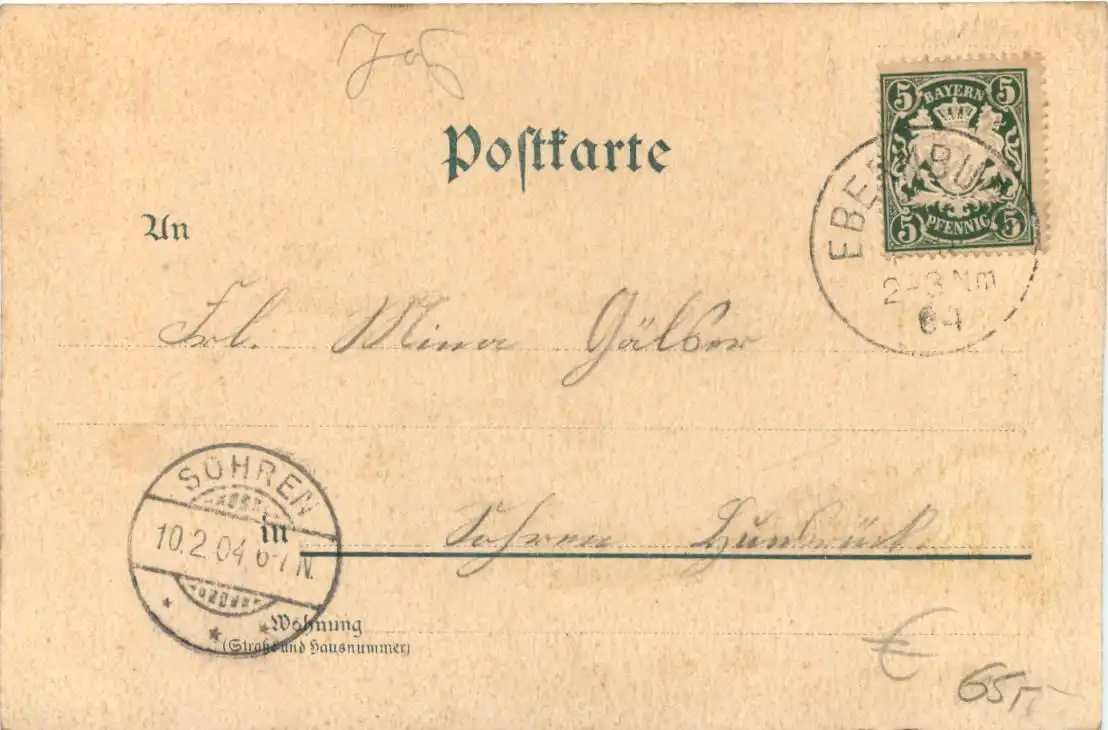 Postkarte
5 BAYERN 5
5 PFENNIG 5
2-3 Nm
04
An
Frl. Mina
SOHREN
10.2.04.6-7N.
in
Sohren Hunsrück.
Wohnung
(Straße und Hausnummer)
€
65,-